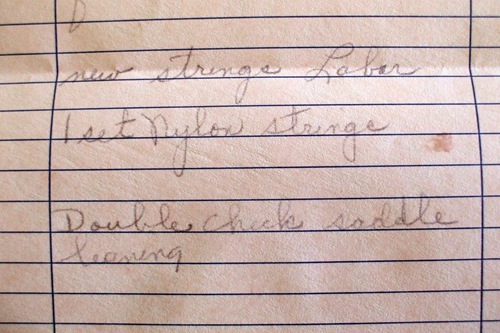 new strings Labor
1 set Nylon strings
Double check saddle
leaning